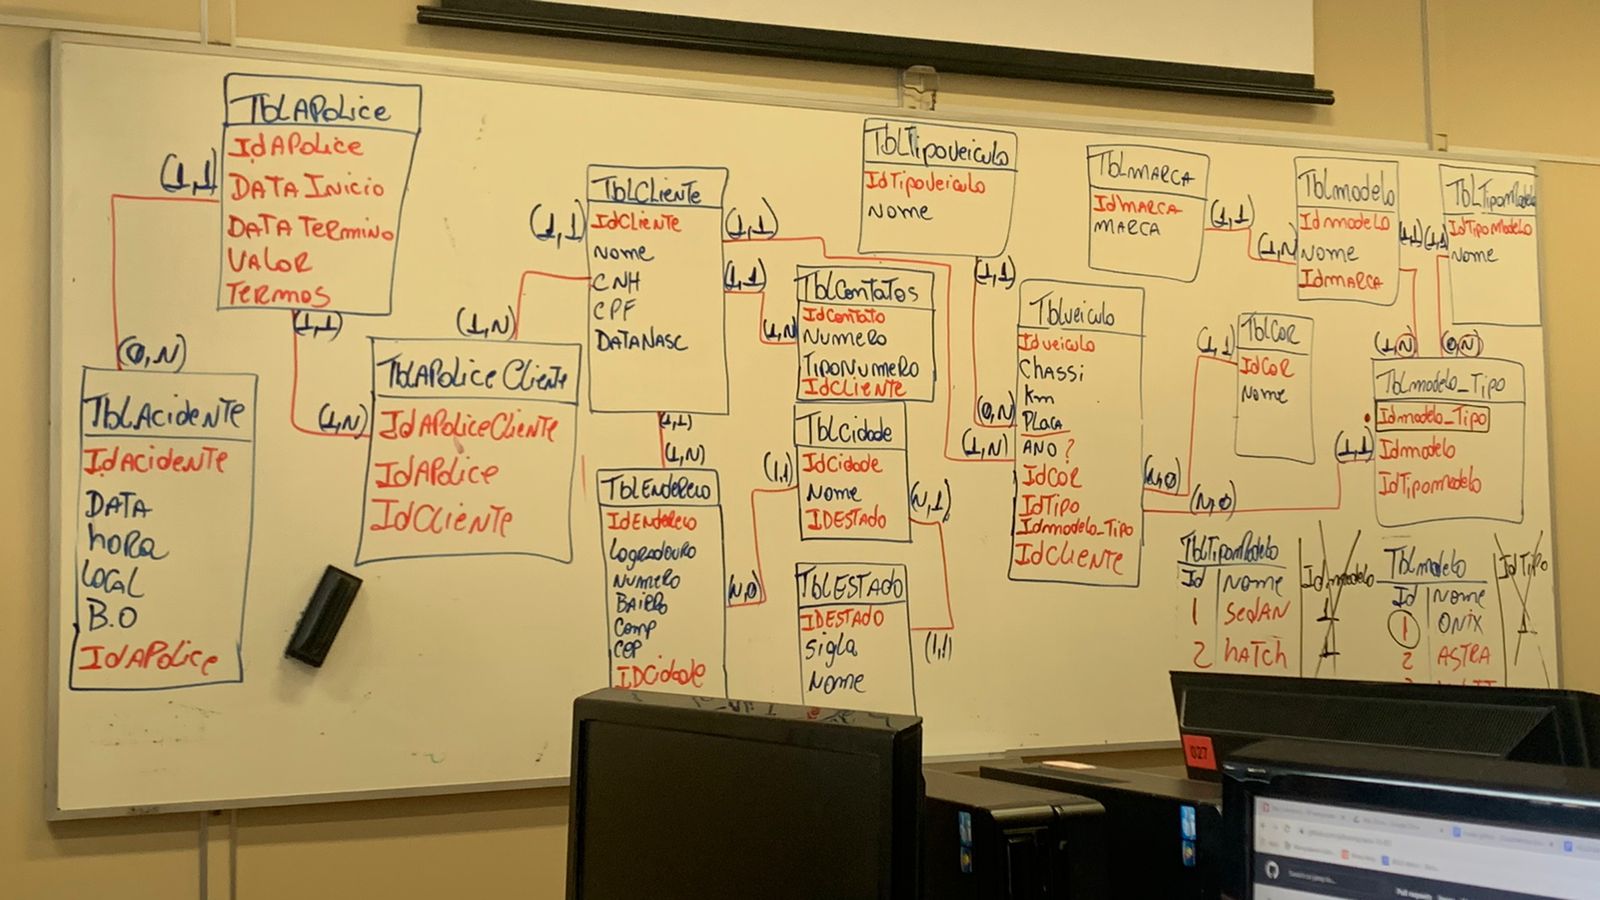 TblAPolice
IdAPolice
DATA Inicio
DATA Termino
VALOR
Termos
(1,1)
(0,N)
(1,1)
(1,N)
TblAcidente
IdAcidente
DATA
hora
Local
B.O
IdAPolice
TblAPolice Cliente
IdAPoliceCliente
IdAPolice
IdCliente
(1,N)
(1,1)
TblCliente
IdCliente
Nome
CNH
CPF
DATANASC
(1,1)
(1,1)
(1,N)
(1,1)
(1,N)
TblEndereco
IdEndereco
Logradouro
Numero
Bairro
Comp
CEP
IDCidade
(N,0)
(1,1)
TblContatos
IdContato
Numero
TipoNumero
IdCliente
TblCidade
IdCidade
Nome
IDESTADO
(N,1)
(1,1)
TblESTADO
IDESTADO
sigla
Nome
TblTipoveiculo
IdTipoveiculo
Nome
(1,1)
(0,N)
(1,N)
Tblveiculo
Idveiculo
Chassi
Km
Placa
ANO ?
IdCOR
IdTipo
Idmodelo_Tipo
IdCliente
(N,0)
(1,1)
(N,0)
(1,1)
TblCOR
IdCOR
Nome
TblMARCA
IdMARCA
MARCA
(1,1)
(1,N)
Tblmodelo
Idmodelo
Nome
IdMARCA
(1,1)
(1,1)
TblTipoModelo
IdTipoModelo
Nome
(1,N)
(0,N)
Tblmodelo_Tipo
Idmodelo_Tipo
Idmodelo
IdTipomodelo
TblTipoModelo
Id Nome Idmodelo
1 sedAN 1
2 hATCH 1
Tblmodelo IdTipo
Id Nome
1 ONIX 1
2 ASTRA
027